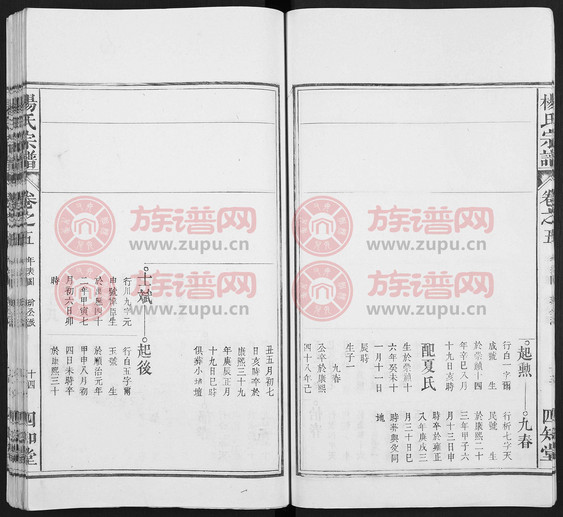 楊氏宗譜
卷之五
四知堂
起勲
九春
行白一字爾
成號 生
於崇禎十四
年辛巳八月
十九日亥時
配夏氏
生於崇禎十
六年癸未十
一月十一日
辰時
生子一
九春
公卒於康熙
四十八年己
行析七字天
民號 生
於康熙二十
三年甲子六
月十三日申
時卒於雍正
八年庚戌三
月三十日巳
時葬與父同
地
丑五月初七
日亥時卒於
康熙三十九
年庚辰正月
十九日巳時
俱葬小堵壋
士斌
起後
行川九字元
申號 臣生
四十
二年甲寅七
月初六日卯
時
行白五字爾
玉號 生
於順治元年
甲申八月初
四日未時卒
於康熙三十
楊氏宗譜
卷之五
年表圖
公派
十四
四知堂
族谱网
www.zupu.cn
族谱网
www.zupu.cn